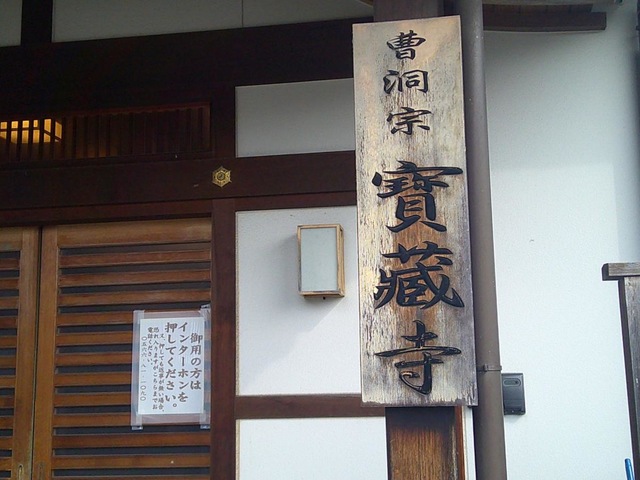 曹洞宗 寳藏寺
御用の方は
インターホンを
押してください。